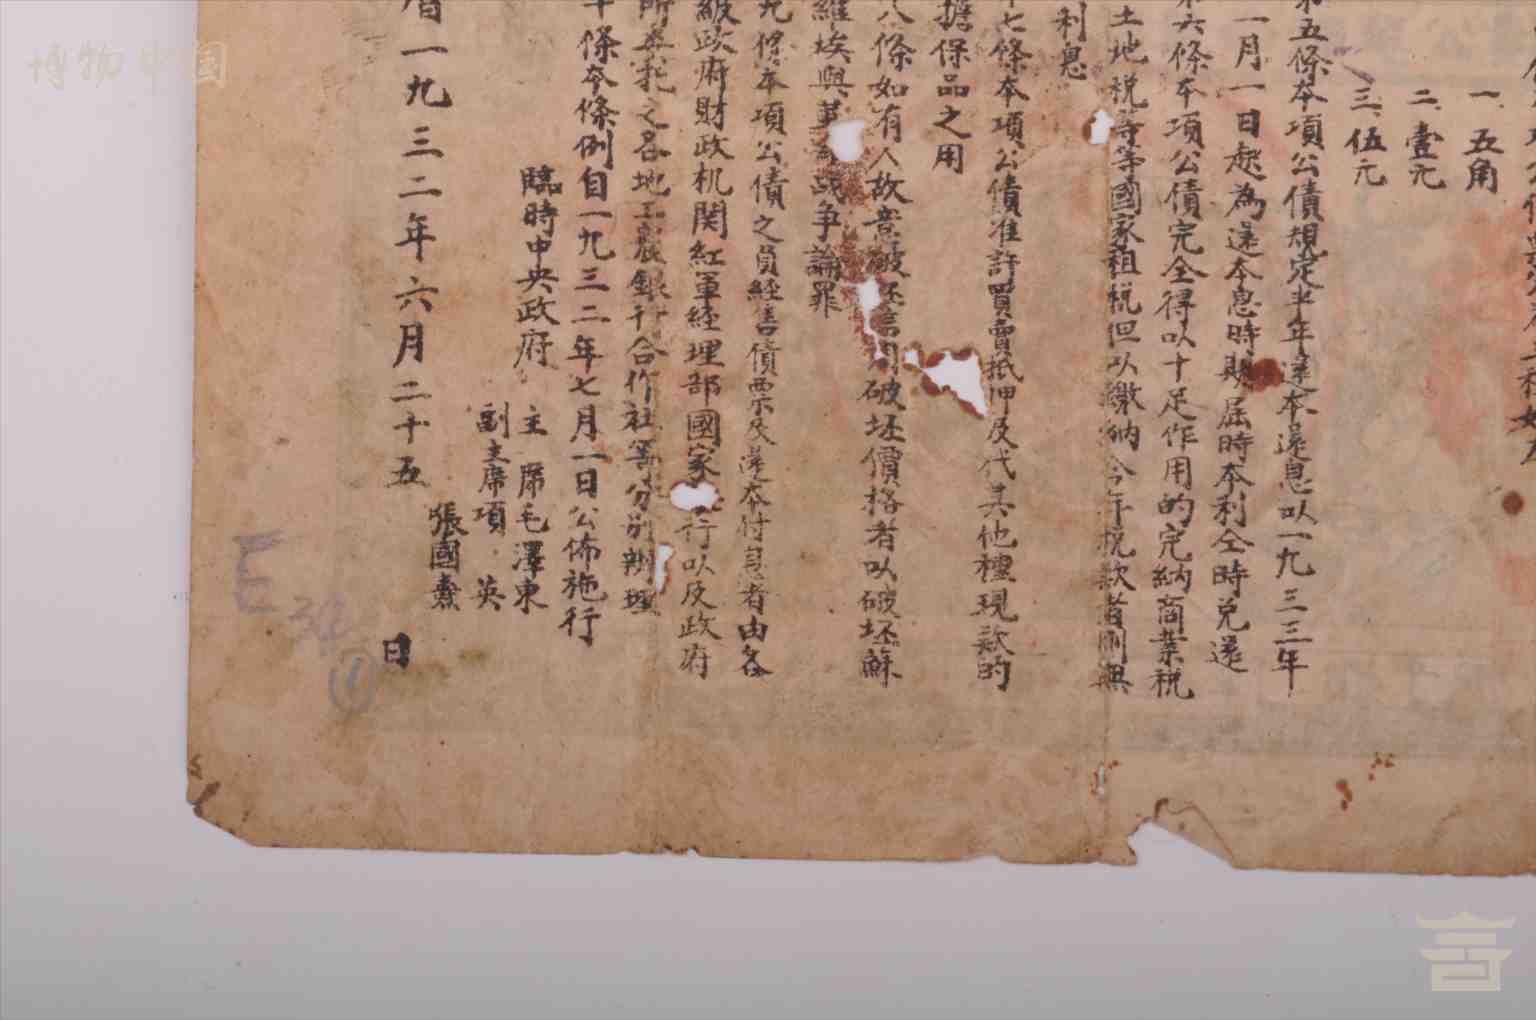 一、五角
二、壹元
三、伍元
五條本項公債規定半年還本還息以一九三三年
一月一日起為還本息時期屆時本利仝時兌還
六條本項公債完全得以十足作用的完納商業稅
土地税等等國家租税但以繳納今年税款者則無
利息
七條本項公債准許買賣抵押及代其他種現款的
擔保品之用
八條如有人故意破坯信用破坯價格者以破坯蘇
維埃與革命战争論罪
九條本項公債之員經售債票及還本付息者由各
級政府財政机関紅軍経理部國家行以及政府
所委託之各地工農銀行合作社等分別辦理
十條本條例自一九三二年七月一日公佈施行
臨時中央政府
主席毛澤東
副主席項英
張國燾
曆一九三二年六月二十五日
E
34
①
博物中國